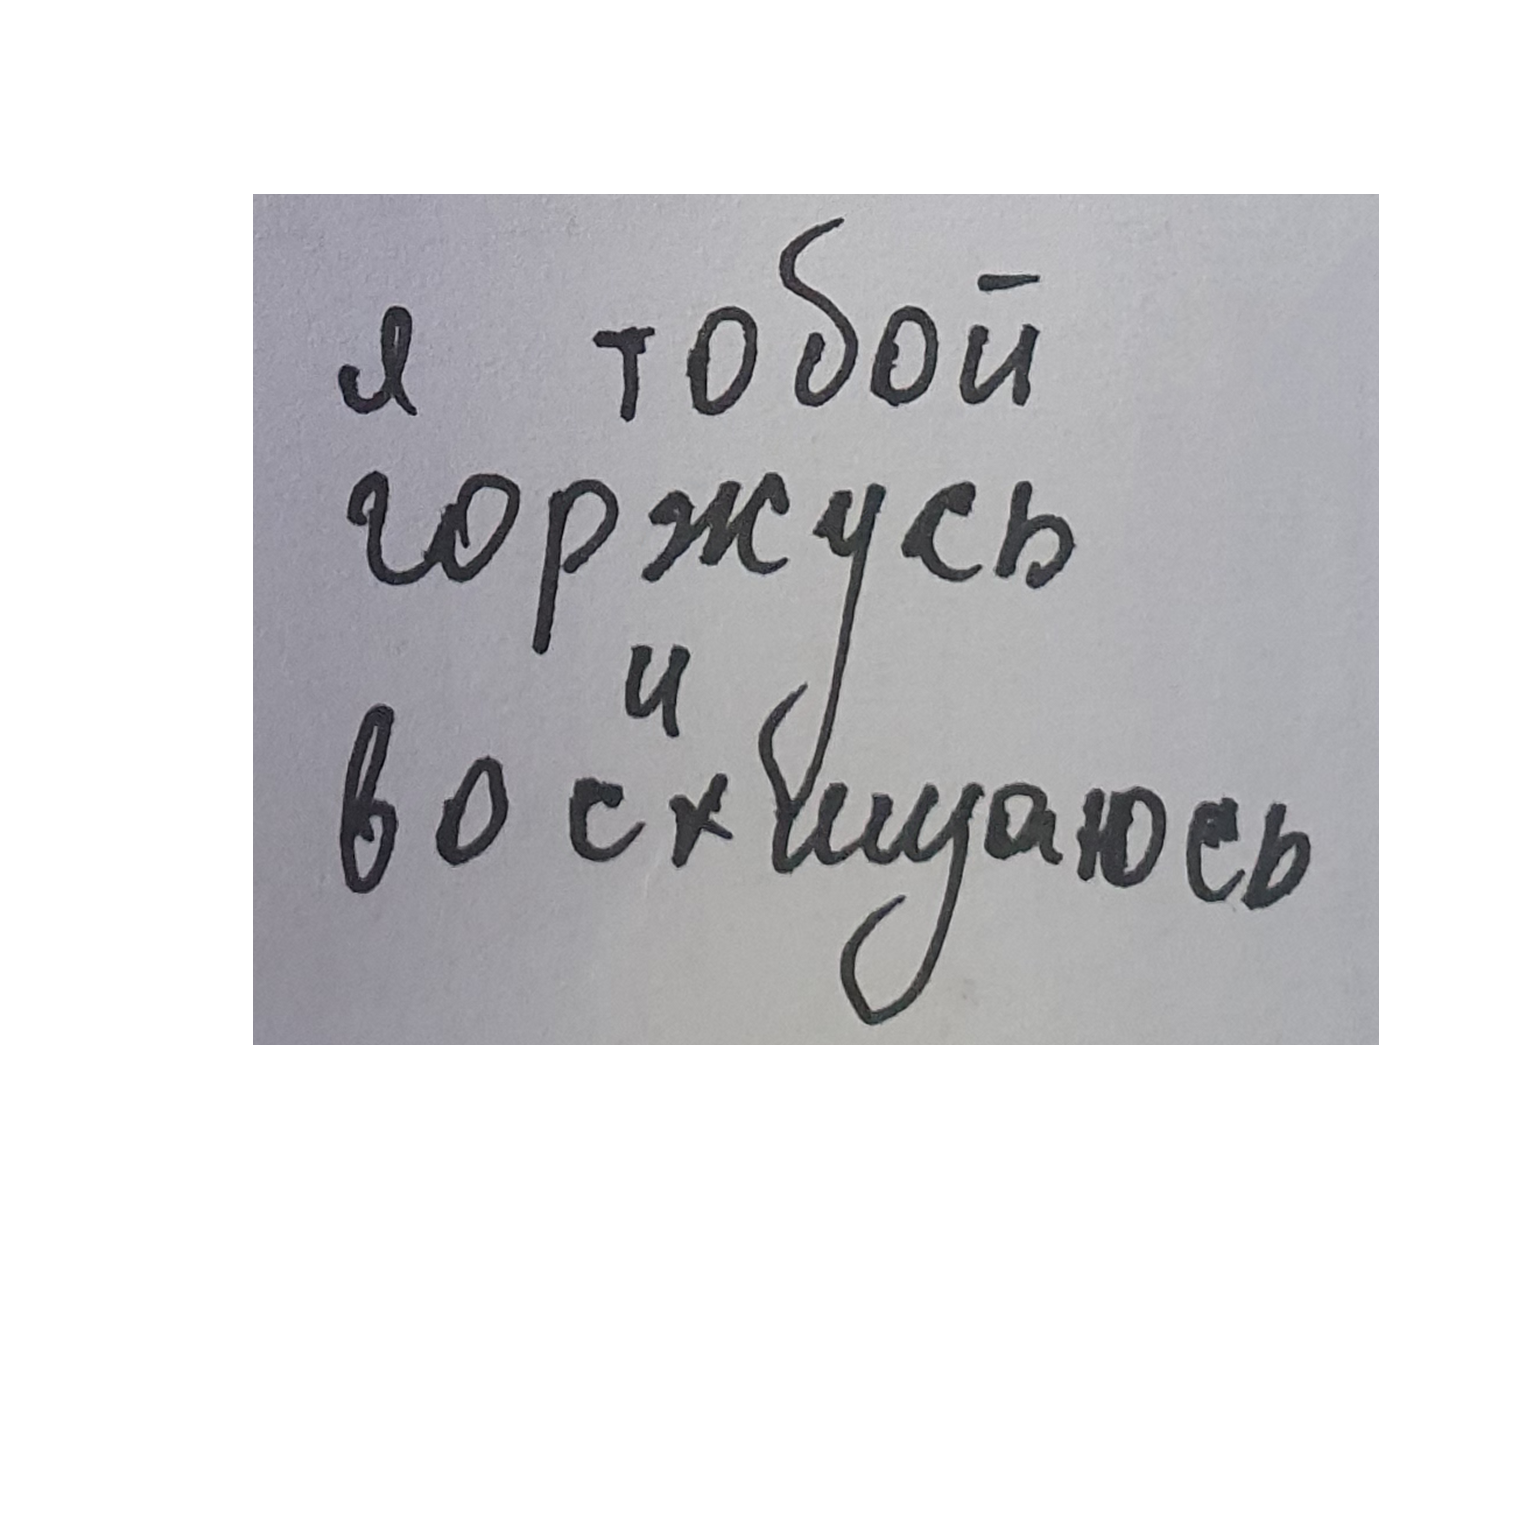 я тобой
горжусь
и
восхищаюсь